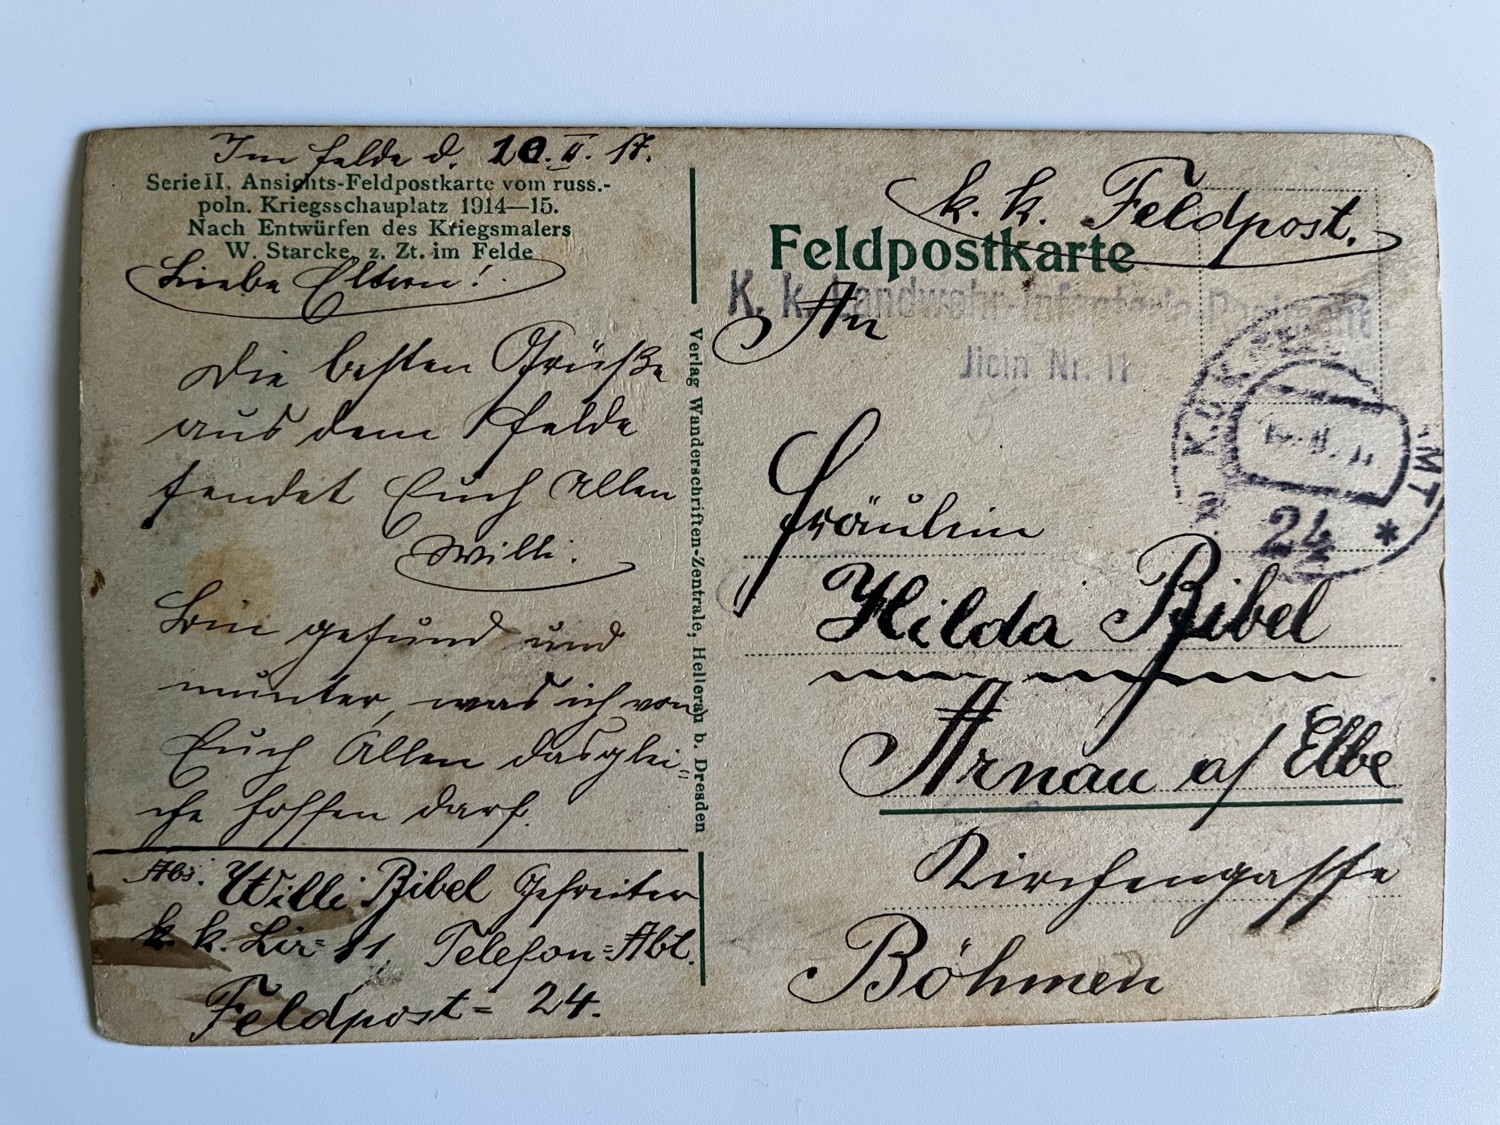 Im Felde d. 10. II. 17.
Serie II. Ansichts-Feldpostkarte vom russ.-
poln. Kriegsschauplatz 1914—15.
Nach Entwürfen des Kriegsmalers
W. Starcke, z. Zt. im Felde
Liebe Eltern!
Die besten Grüße
aus dem Felde
sendet Euch Allen
Willi.
Bin gesund und
munter, was ich von
Euch Allen dasglei=
che hoffen darf.
Abs. Willi Bibel Gefreiter
k. k. Lir= 11 Telefon=Abt.
Feldpost= 24.
Verlag Wanderschriften-Zentrale, Hellerau b. Dresden
k. k. Feldpost.
Feldpostkarte
K. k. Landwehr-Infanterie-Regiment
Jicin Nr. 11
An
Fräulein
Hilda Bibel
Arnau a/ Elbe
Kirchengasse
Böhmen
24 *